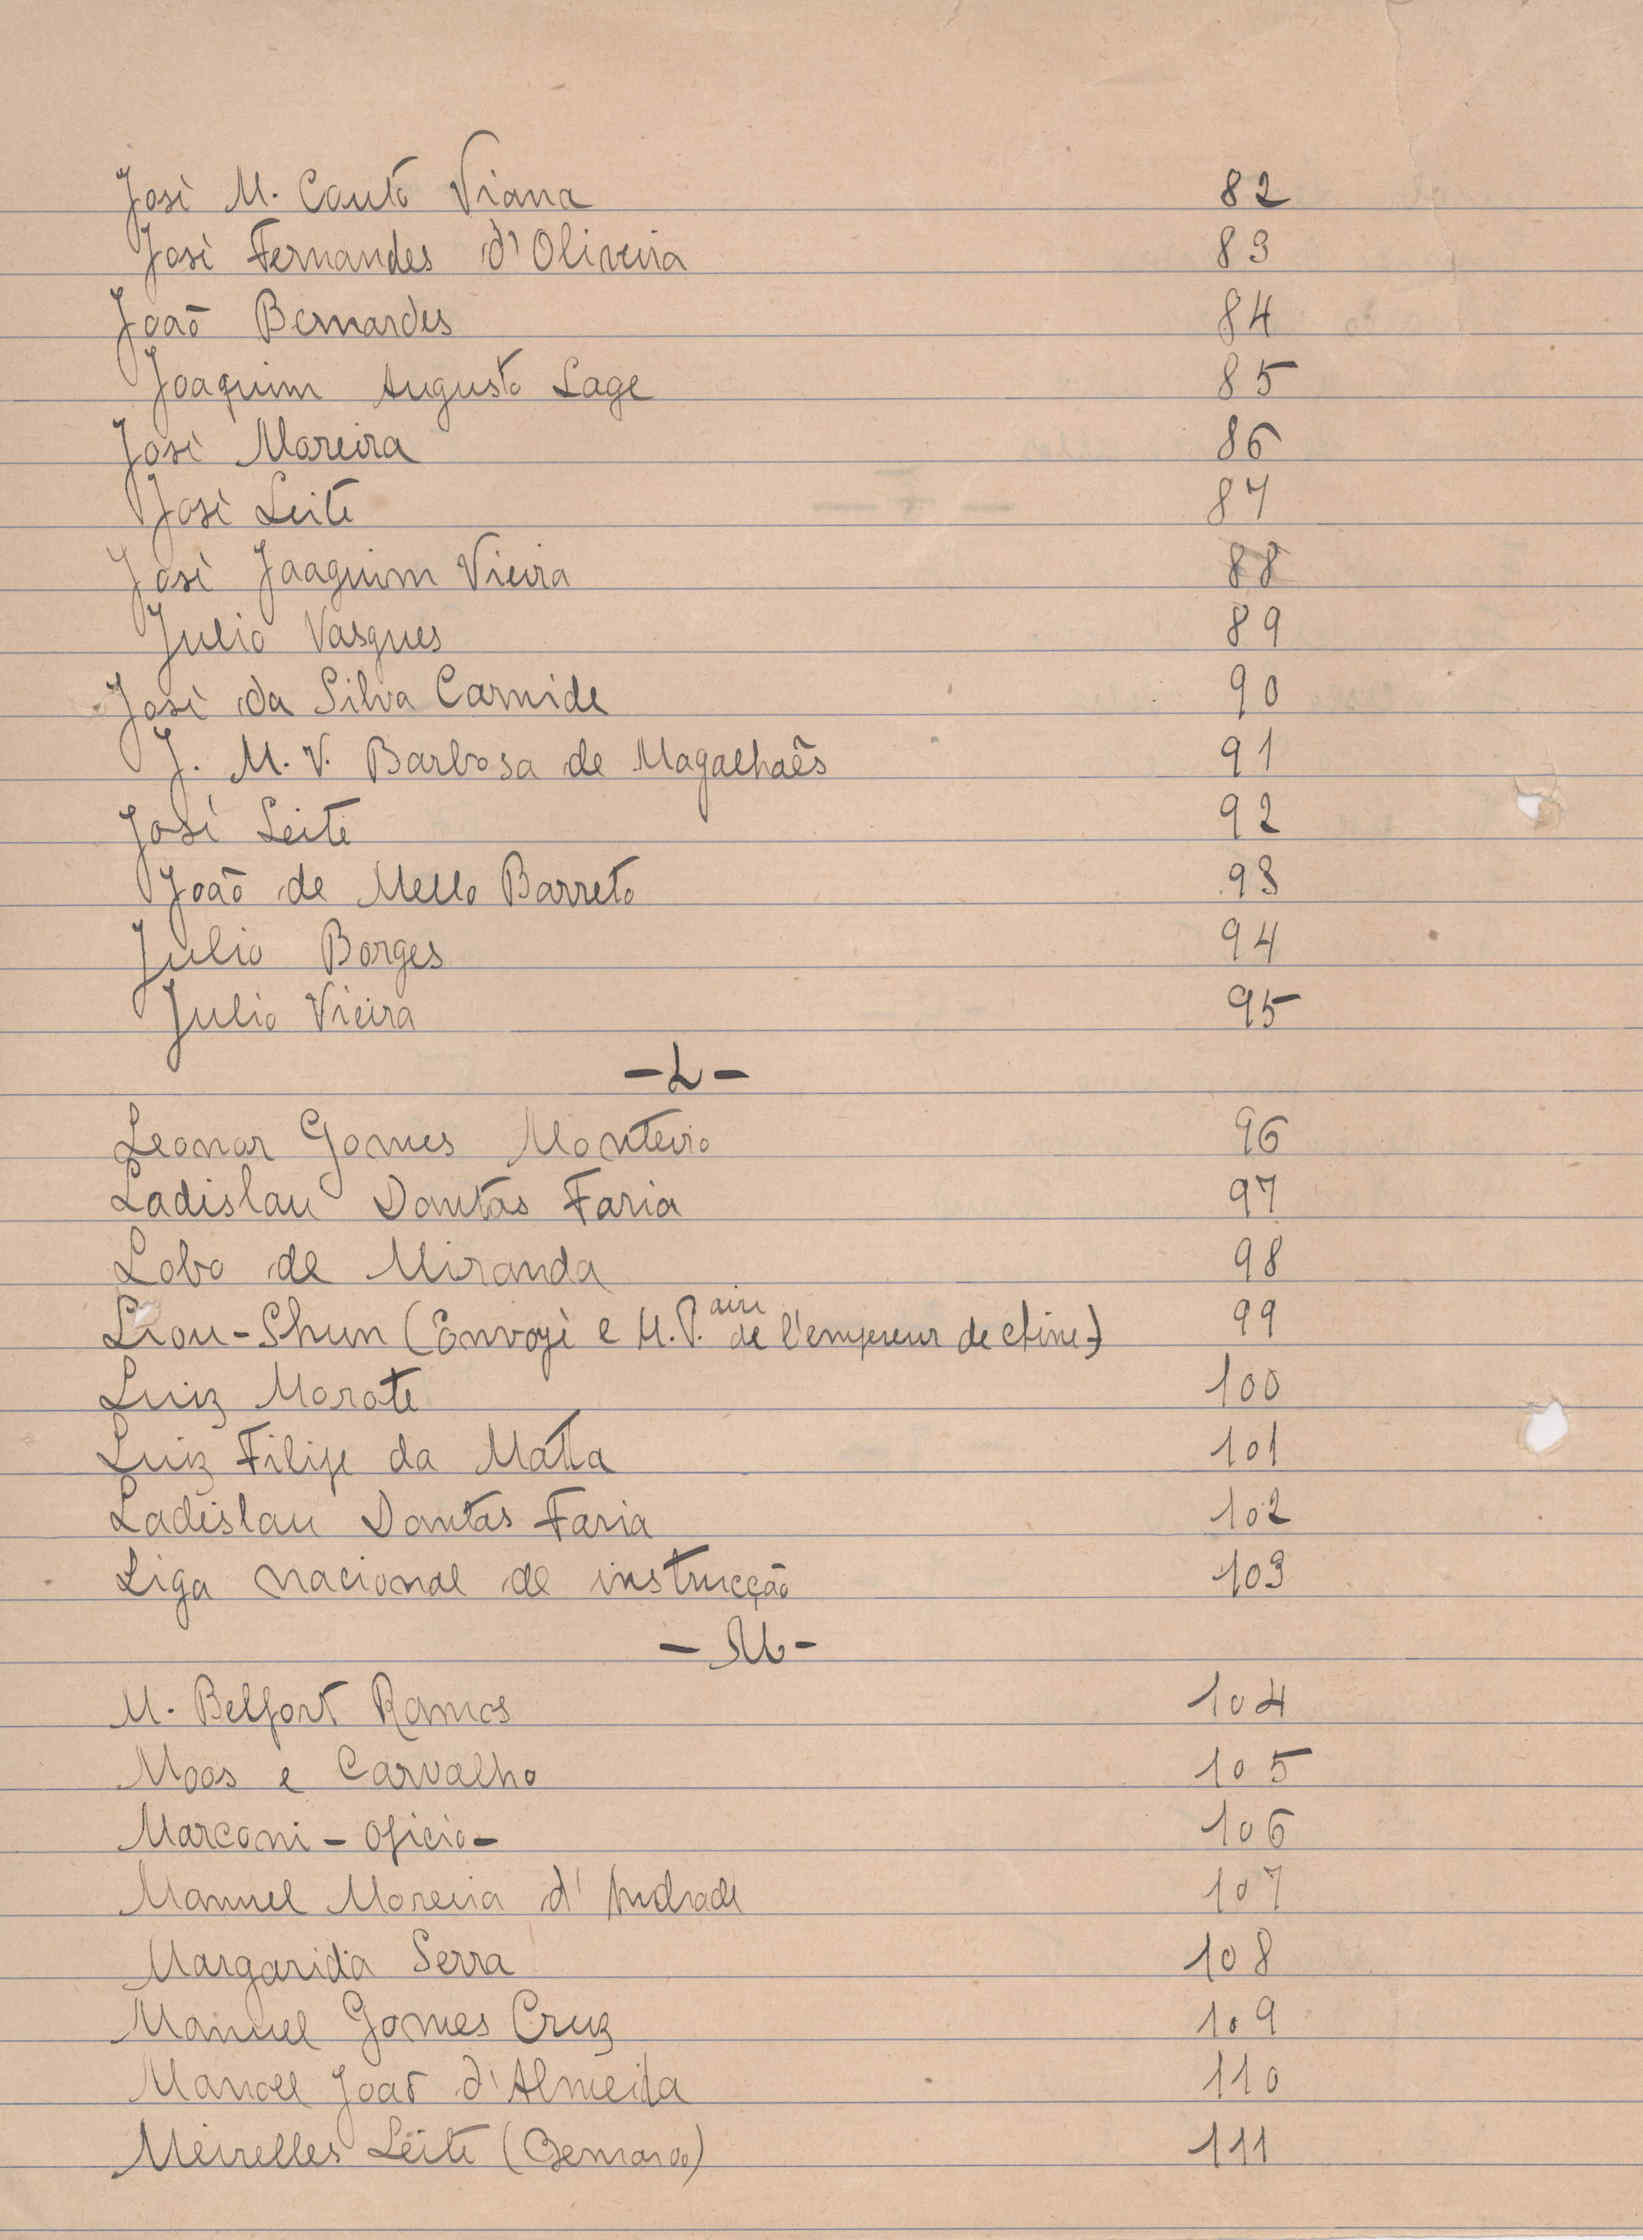 Josè M. Couto Viana 82
Josè Fernandes d'Oliveira 83
João Bernardes 84
Joaquim Augusto Lage 85
Josè Moreira 86
Josè Leite 87
Josè Joaquim Vieira 88
Julio Vasques 89
Josè da Silva Carnide 90
J. M. V. Barbosa de Magalhaẽs 91
Josè Leite 92
João de Mello Barreto 93
Julio Borges 94
Julio Vieira 95
- L -
Leonor Gomes Monteiro 96
Ladislau Dantas Faria 97
Lobo de Miranda 98
Liou-Shun (Envoyè e M. P.aire de l'empereur de chine) 99
Luiz Morote 100
Luiz Filipe da Matta 101
Ladislau Dantas Faria 102
Liga nacional de instrucção 103
- M -
M. Belfort Ramos 104
Moos e Carvalho 105
Marconi - oficio - 106
Manuel Moreira d'Andrade 107
Margarida Serra 108
Manuel Gomes Cruz 109
Manoel João d'Almeida 110
Meirelles Leite (Bernardo) 111